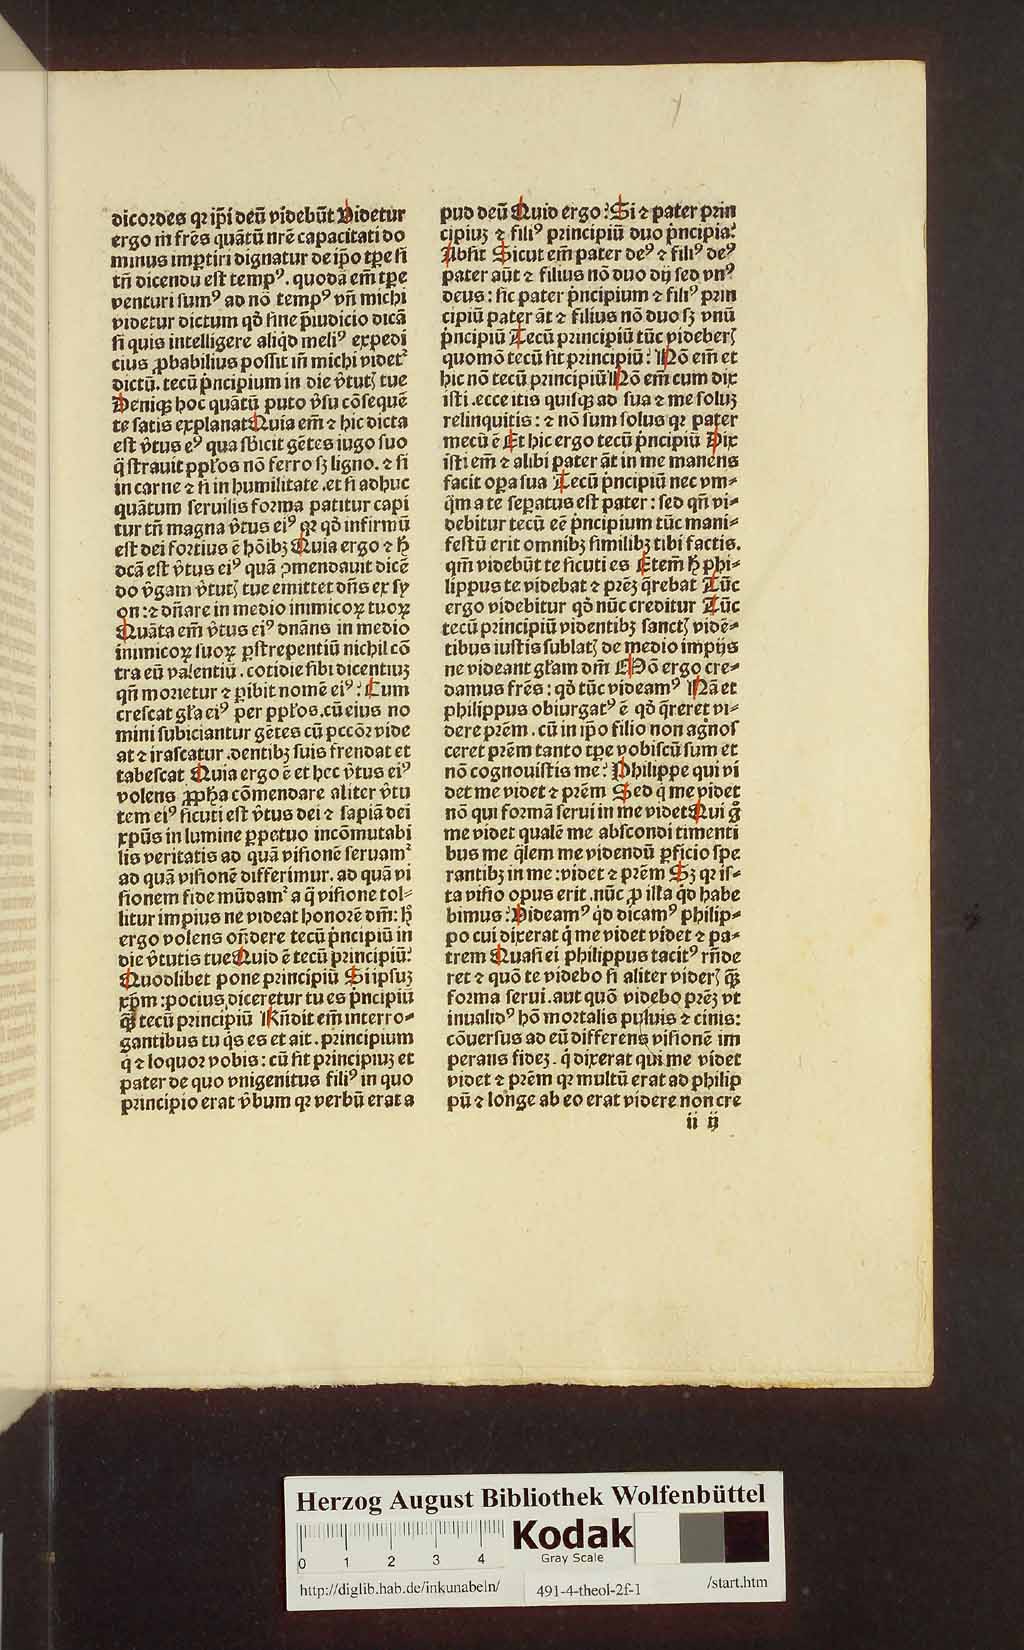 dicordes qꝛ ip̄i deū videbūt Videtur
ergo m̄ fr̄es quātū nr̄e capacitati do
minus imꝑtiri dignatur de ip̄o tꝑe si
tn̄ dicendu est tempꝰ. quodā em̄ tꝑe
venturi sumꝰ ad nō tempꝰ vn̄ michi
videtur dictum qd̓ sine p̄iudicio dicā
si quis intelligere aliqd̓ meliꝰ expedi
cius ꝓbabilius possit in̄ michi videt᷑
dictū. tecū p̄ncipium in die v̓tutꝭ tue
Deniqꝫ hoc quātū puto v̓su cōsequē
te satis explanat Quia em̄ ⁊ hic dicta
est v̓tus eiꝰ qua sb̓icit gētes iugo suo
q̄ strauit ppl̓os nō ferro sꝫ ligno. ⁊ si
in carne ⁊ si in humilitate .et si adhuc
quātum seruilis forma patitur capi
tur tn̄ magna v̓tus eiꝰ qꝛ qd̓ infirmū
est dei fortius ē hōibꝫ Quia ergo ⁊ h̄
dcā est v̓tus eiꝰ quā ꝯmendauit dicē
do v̓gam v̓tutꝭ tue emittet dn̄s ex sy
on: ⁊ dn̄are in medio inimicoꝝ tuoꝝ
Quāta em̄ v̓tus eiꝰ dnāns in medio
inimicoꝝ suoꝝ ꝑstrepentiū nichil cō
tra eū valentiū. cotidie sibi dicentiuꝫ
qn̄ morietur ⁊ ꝑibit nomē eiꝰ: Cum
crescat gl̓a eiꝰ per ppl̓os. cū eius no
mini subiciantur gētes cū pccōꝛ vide
at ⁊ irascatur .dentibꝫ suis frendat et
tabescat Quia ergo ē et hec v̓tus eiꝰ
volens ꝓph̓a cōmendare aliter v̓tu
tem eiꝰ sicuti est v̓tus dei ⁊ sapiā dei
xpūs in lumine ꝑpetuo incōmutabi
lis veritatis ad quā visionē seruam᷑
ad quā visionē differimur. ad quā vi
sionem fide mūdam᷑ a q̄ visione tol⸗
litur impius ne videat honorē dm̄: h̄
ergo volens on̄dere tecū p̄ncipiū in
die v̓tutis tue Quid ē tecū principiū:
Quodlibet pone principiū Si ipsuꝫ
xp̄m :pocius diceretur tu es p̄ncipiū
qꝫ̄ tecū principiū Rn̄dit em̄ interro⸗
gantibus tu qs̓ es et ait. principium
q̓ ⁊ loquor vobis: cū sit principiuꝫ et
pater de quo vnigenitus filiꝰ in quo
principio erat v̓bum qꝛ verbū erat a
pud deū Quid ergo: Si ⁊ pater prin
cipiuꝫ ⁊ filiꝰ principiū duo p̄ncipia:
Absit Sicut em̄ pater deꝰ ⁊ filiꝰ deꝰ
pater aūt ⁊ filius nō duo dij sed vnꝰ
deus: sic pater p̄ncipium ⁊ filiꝰ prin
cipiū pater āt ⁊ filius nō duo sꝫ vnū
p̄ncipiū Tecū principiū tūc videberꝭ
quomō tecū sit principiū: Nō em̄ et
hic nō tecū principiū Nō em̄ cum dix
isti .ecce itis quisqꝫ ad sua ⁊ me soluꝫ
relinquitis: ⁊ nō sum solus qꝛ pater
mecū ē Et hic ergo tecū p̄ncipiū Dix
isti em̄ ⁊ alibi pater āt in me manens
facit oꝑa sua Tecū p̄ncipiū nec vm⸗
q̄m a te seꝑatus est pater: sed qn̄ vi⸗
debitur tecū eē p̄ncipium tūc mani⸗
festū erit omnibꝫ similibꝫ tibi factis.
qm̄ videbūt te sicuti es Etem̄ h̄ phi⸗
lippus te videbat ⁊ prēꝫ q̄rebat Tūc
ergo videbitur qd̓ nūc creditur Tūc
tecū principiū videntibꝫ sanctꝭ vidē⸗
tibus iustis sublatꝭ de medio impijs
ne videant gl̓am dm̄ Mō ergo cre⸗
damus fr̄es: qd̓ tūc videamꝰ Nā et
philippus obiurgatꝰ ē qd̓ q̄reret vi⸗
dere prēm. cū in ip̄o filio non agnos
ceret prēm tanto tꝑe vobiscū sum et
nō cognouistis me: Philippe qui vi
det me videt ⁊ prēm Sed q̓ me videt
nō qui formā serui in me videt Qui gͦ
me videt qualē me abscondi timenti
bus me q̄lem me videndū ꝑficio spe
rantibꝫ in me: videt ⁊ prēm Sꝫ qꝛ is⸗
ta visio opus erit .nūc ꝓ illa qd̓ habe
bimus: Videamꝰ qd̓ dicamꝰ philip⸗
po cui dixerat q̓ me videt videt ⁊ pa⸗
trem Quasi ei philippus tacitꝰ rn̄de
ret ⁊ quō te videbo si aliter viderꝭ qꝫ̄
forma serui. aut quō videbo prēꝫ vt
inualidꝰ hō mortalis puluis ⁊ cinis:
cōuersus ad eū differens visionē im
perans fideꝫ. q̓ dixerat qui me videt
videt ⁊ prēm qꝛ multū erat ad philip
pū ⁊ longe ab eo erat videre non cre
ii ij
Herzog August Bibliothek Wolfenbüttel
Kodak
Gray Scale
0 1 2 3 4
http://diglib.hab.de/inkunabeln/ 491-4-theol-2f-1 /start.htm